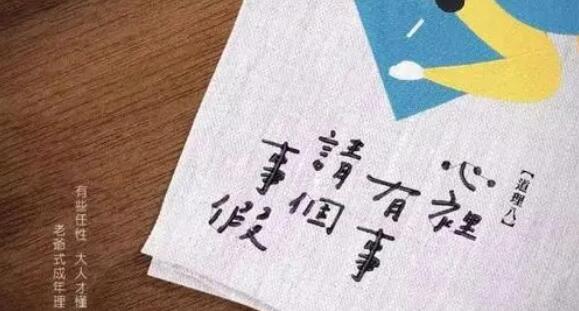 【道理八】
心裡
有事
請個
事假
有些任性 大人才懂
老爺式成年理